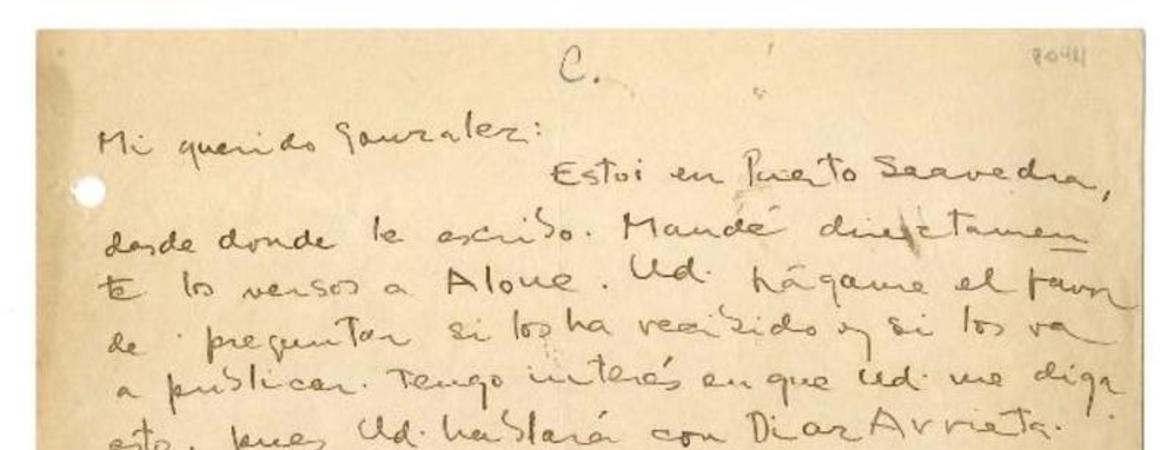 C.
8041
Mi querido Gonzalez:
Estoi en Puerto Saavedra,
desde donde le escribo. Mandé directamen
te los versos a Alone. Ud. hágame el favor
de preguntar si los ha recibido y si los va
a publicar. Tengo interés en que Ud. me diga
esto, pues Ud. hablará con Diaz Arrieta.